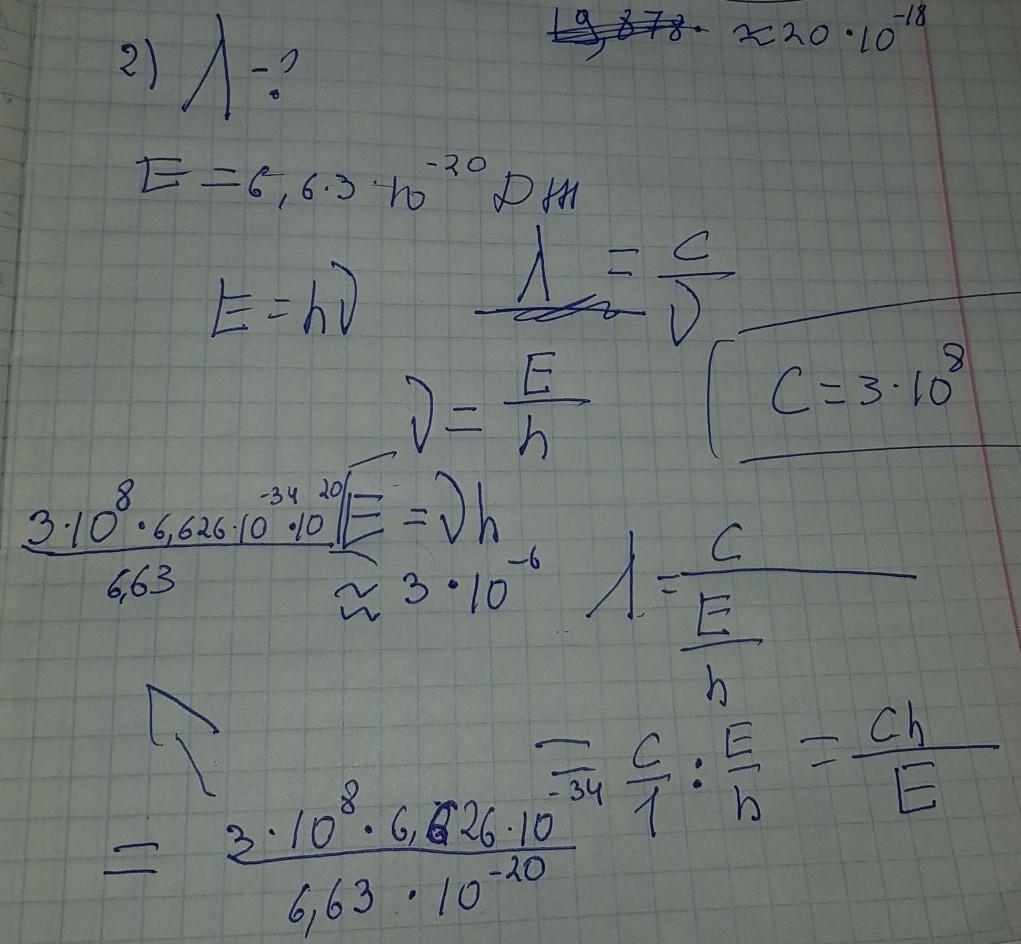 ~~19,878·~~ ≈ 20 · 10⁻¹⁸
2) λ - ?
E = 6,6·3 · 10⁻²⁰ Дж
E = hν λ = c/ν
ν = E/h
C = 3 · 10⁸
E = νh
(3·10⁸ · 6,626·10⁻³⁴ · 10²⁰)/6,63 ≈ 3 · 10⁻⁶
λ = C/(E/h)
= C/1 : E/h = Ch/E
= (3 · 10⁸ · 6,626 · 10⁻³⁴)/(6,63 · 10⁻²⁰)